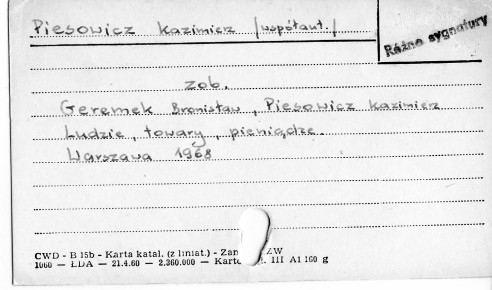 Piesowicz Kazimierz /współaut./
Różne sygnatury
zob.
Geremek Bronisław, Piesowicz Kazimierz
Ludzie, towary, pieniądze.
Warszawa 1968
CWD - B 15b - Karta katal. (z liniat.) - ZW
1060 — ŁDA — 21.4.60 — 2.360.000 — III A1 160 g